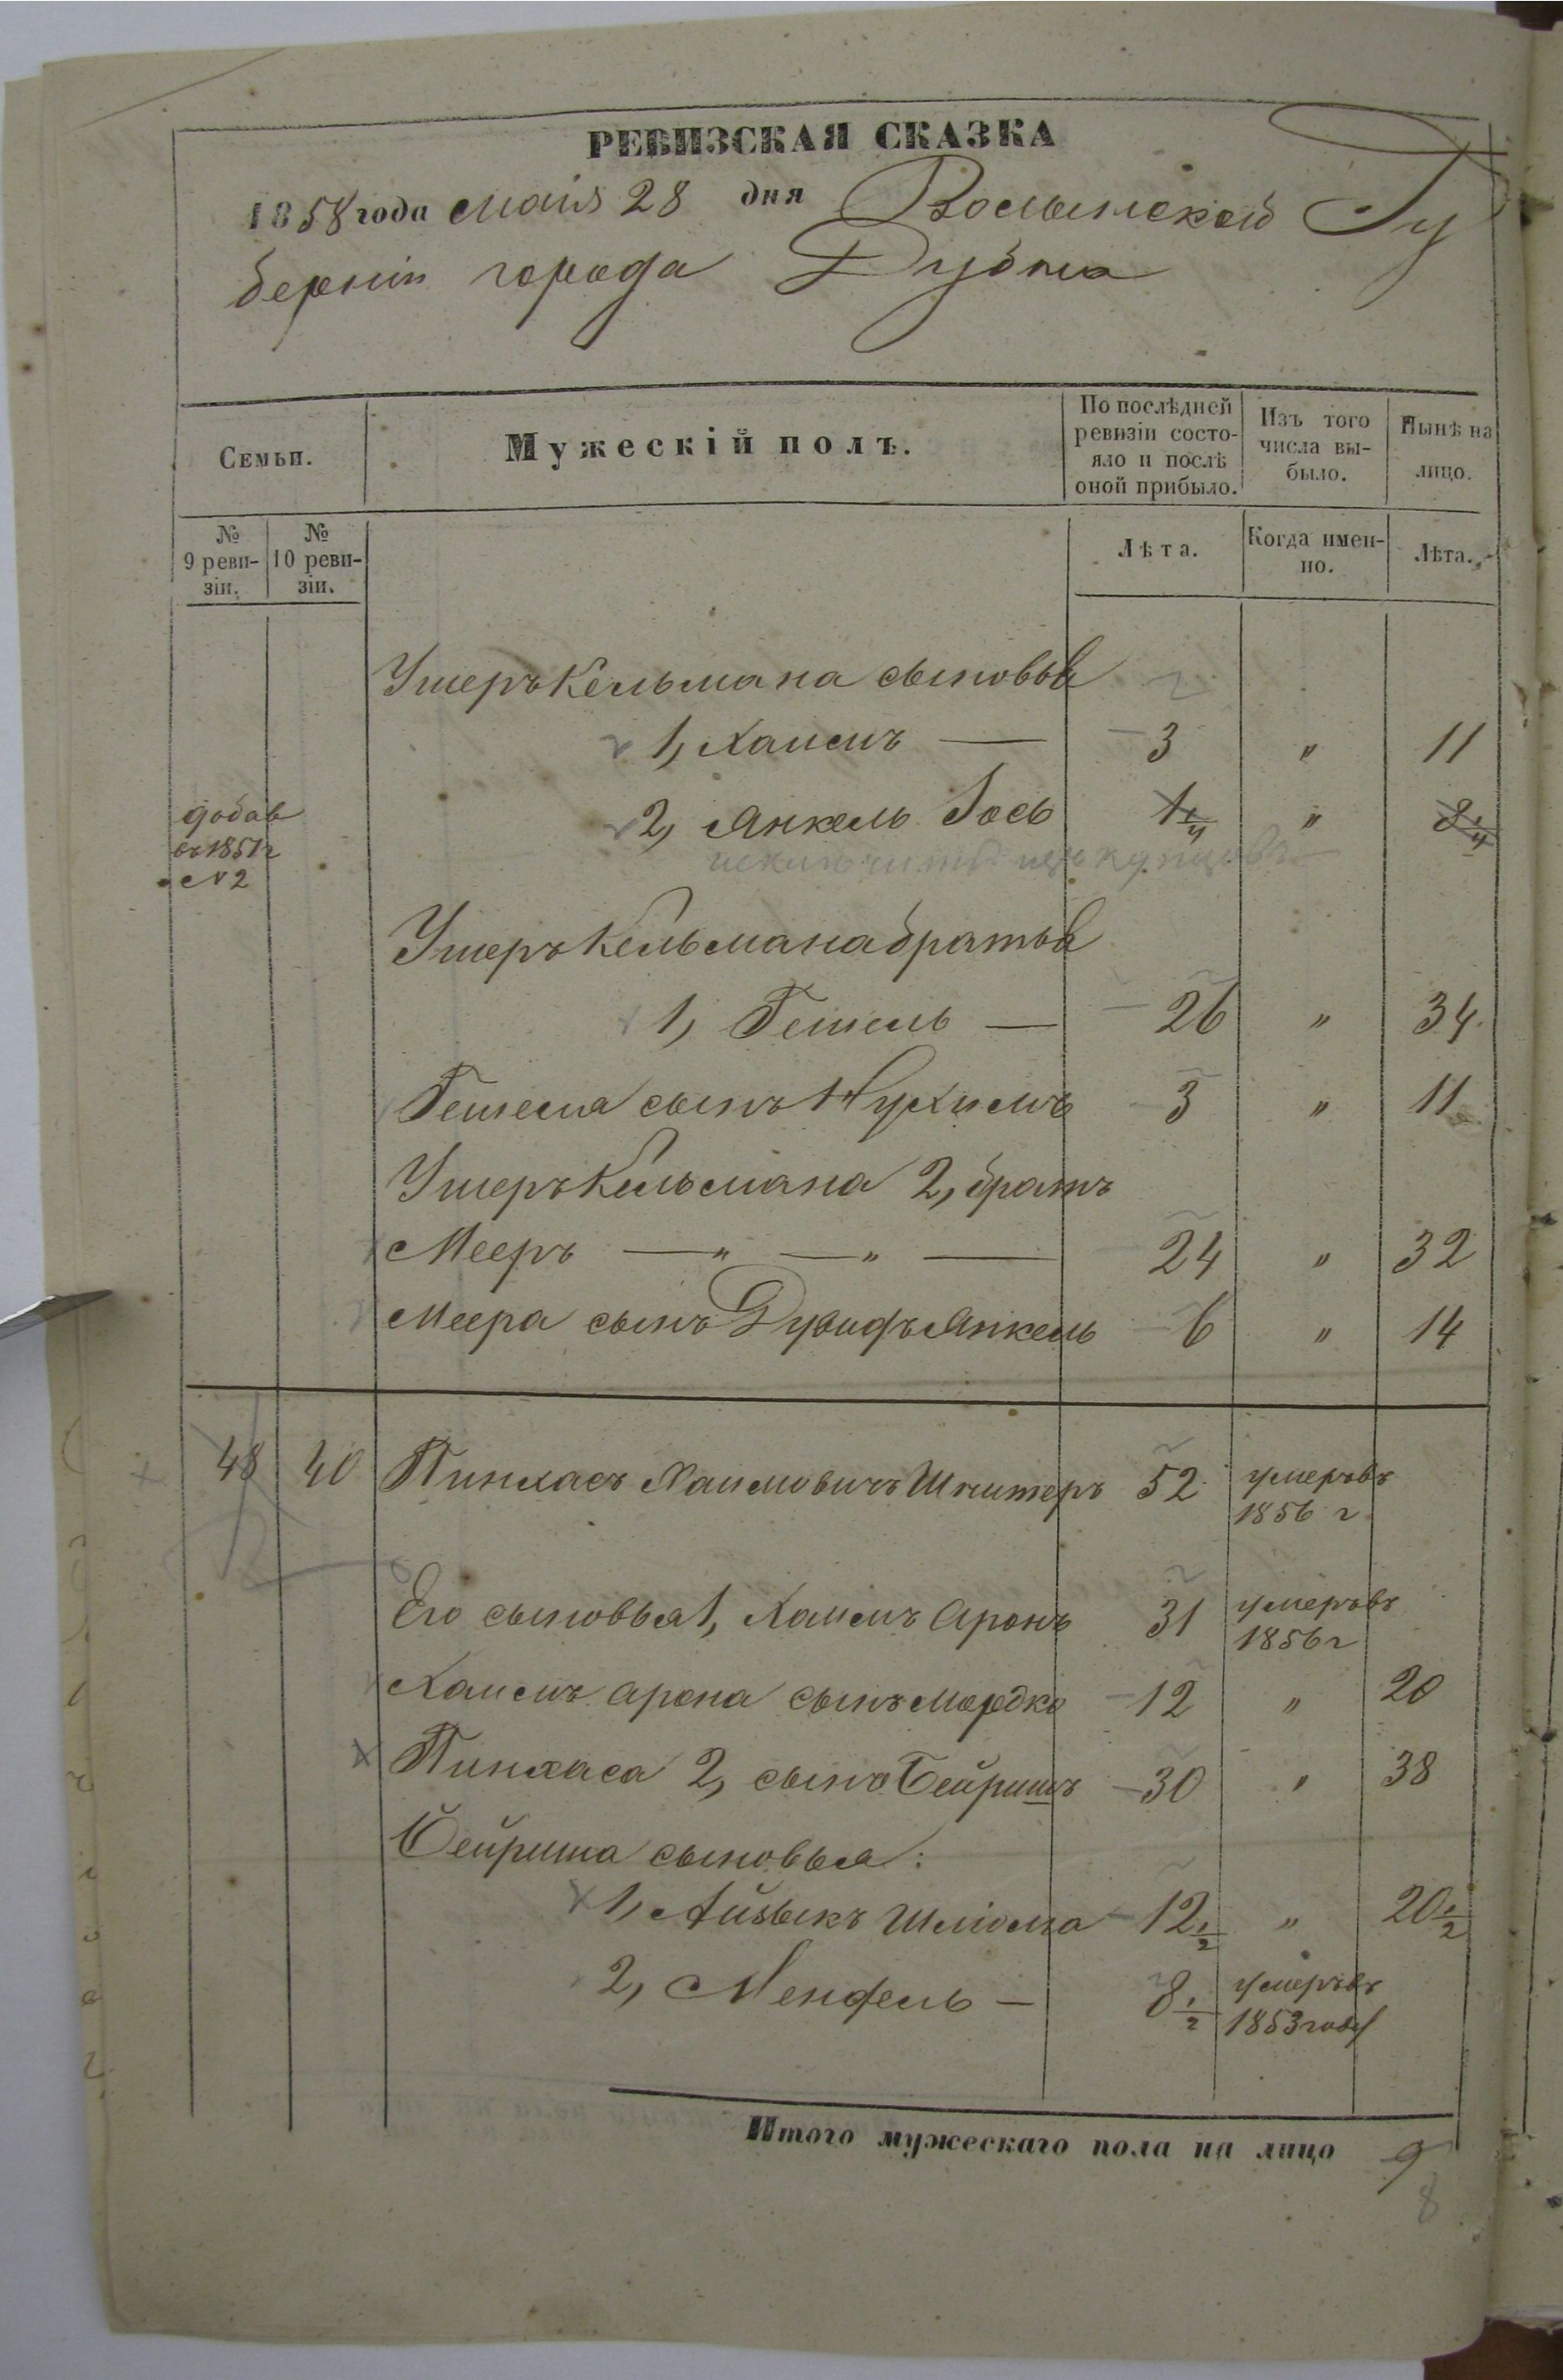 РЕВИЗСКАЯ СКАЗКА
1858 года маія 28 дня Волынской Гу
берніи города Дубна
Семьи.
Мужескій полъ.
По послѣдней ревизіи состо-
яло и послѣ оной прибыло.
Изъ того числа вы-
было.
Нынѣ на лицо.
№ 9 реви-
зіи.
№ 10 реви-
зіи.
Лѣта.
Когда имен-
но.
Лѣта.
Ушеръ Кельмана сыновья
1, Хаимъ — 3 " 11
добав
въ 1851 г
№ 2
2, Янкель Іось 1 1/4 " 8 1/4
исключить изъ купцовъ
Ушеръ Кельмана братья
1, Гешель — 26 " 34
Гешеля сынъ Нухимъ 3 " 11
Ушеръ Кельмана 2, братъ
Мееръ — " — " — 24 " 32
Меера сынъ Дувидъ Янкель 6 " 14
48 40 Пинхасъ Хаимовичъ Шнитеръ 52 умеръ въ
1856 г
Его сыновья 1, Хаимъ Аронъ 31 умеръ въ
1856 г
Хаимъ Арона сынъ Мордко 12 " 20
Пинхаса 2, сынъ Бейришъ 30 " 38
Бейриша сыновья:
1, Айзыкъ Шліома 12 1/2 " 20 1/2
2, Мендель — 8 1/2 умеръ въ
1853 году
Итого мужескаго пола на лицо 9
8